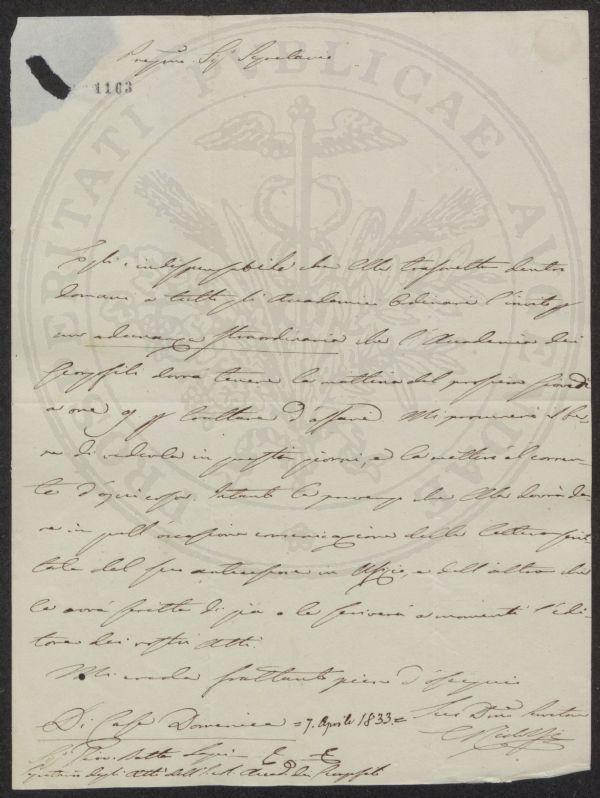 Pregmo. Sigr. Segretario
1163
Egli è indispensabile che Ella trasmetta dentro
domani a tutti gli Accademici Ordinari l'invito p
un adunanza straordinaria che l'Accademia dei
Georgofili dovrà tenere la mattina del prossimo giovedì
a ore 9 p trattare d'affari. Mi procurerò il be-
ne di vederla in questi giorni, e la metterò al corren-
te d'ogni cosa. Intanto la prevengo che Ella dovrà da-
re in quell'occasione comunicazione della lettera
del suo antecessore in Ufizio, e dell'altra che
le avrà scritta di già o le scriverà a momenti l'edi-
tore dei nostri Atti.
Mi creda frattanto pieno d'ossequio
Di Casa Domenica = 7. Aprile 1833. =
Suo Devmo Servitore
C. Ridolfi
Segretario degli Atti dell'I. e R. Accad. dei Georgofili
PUBLICAE